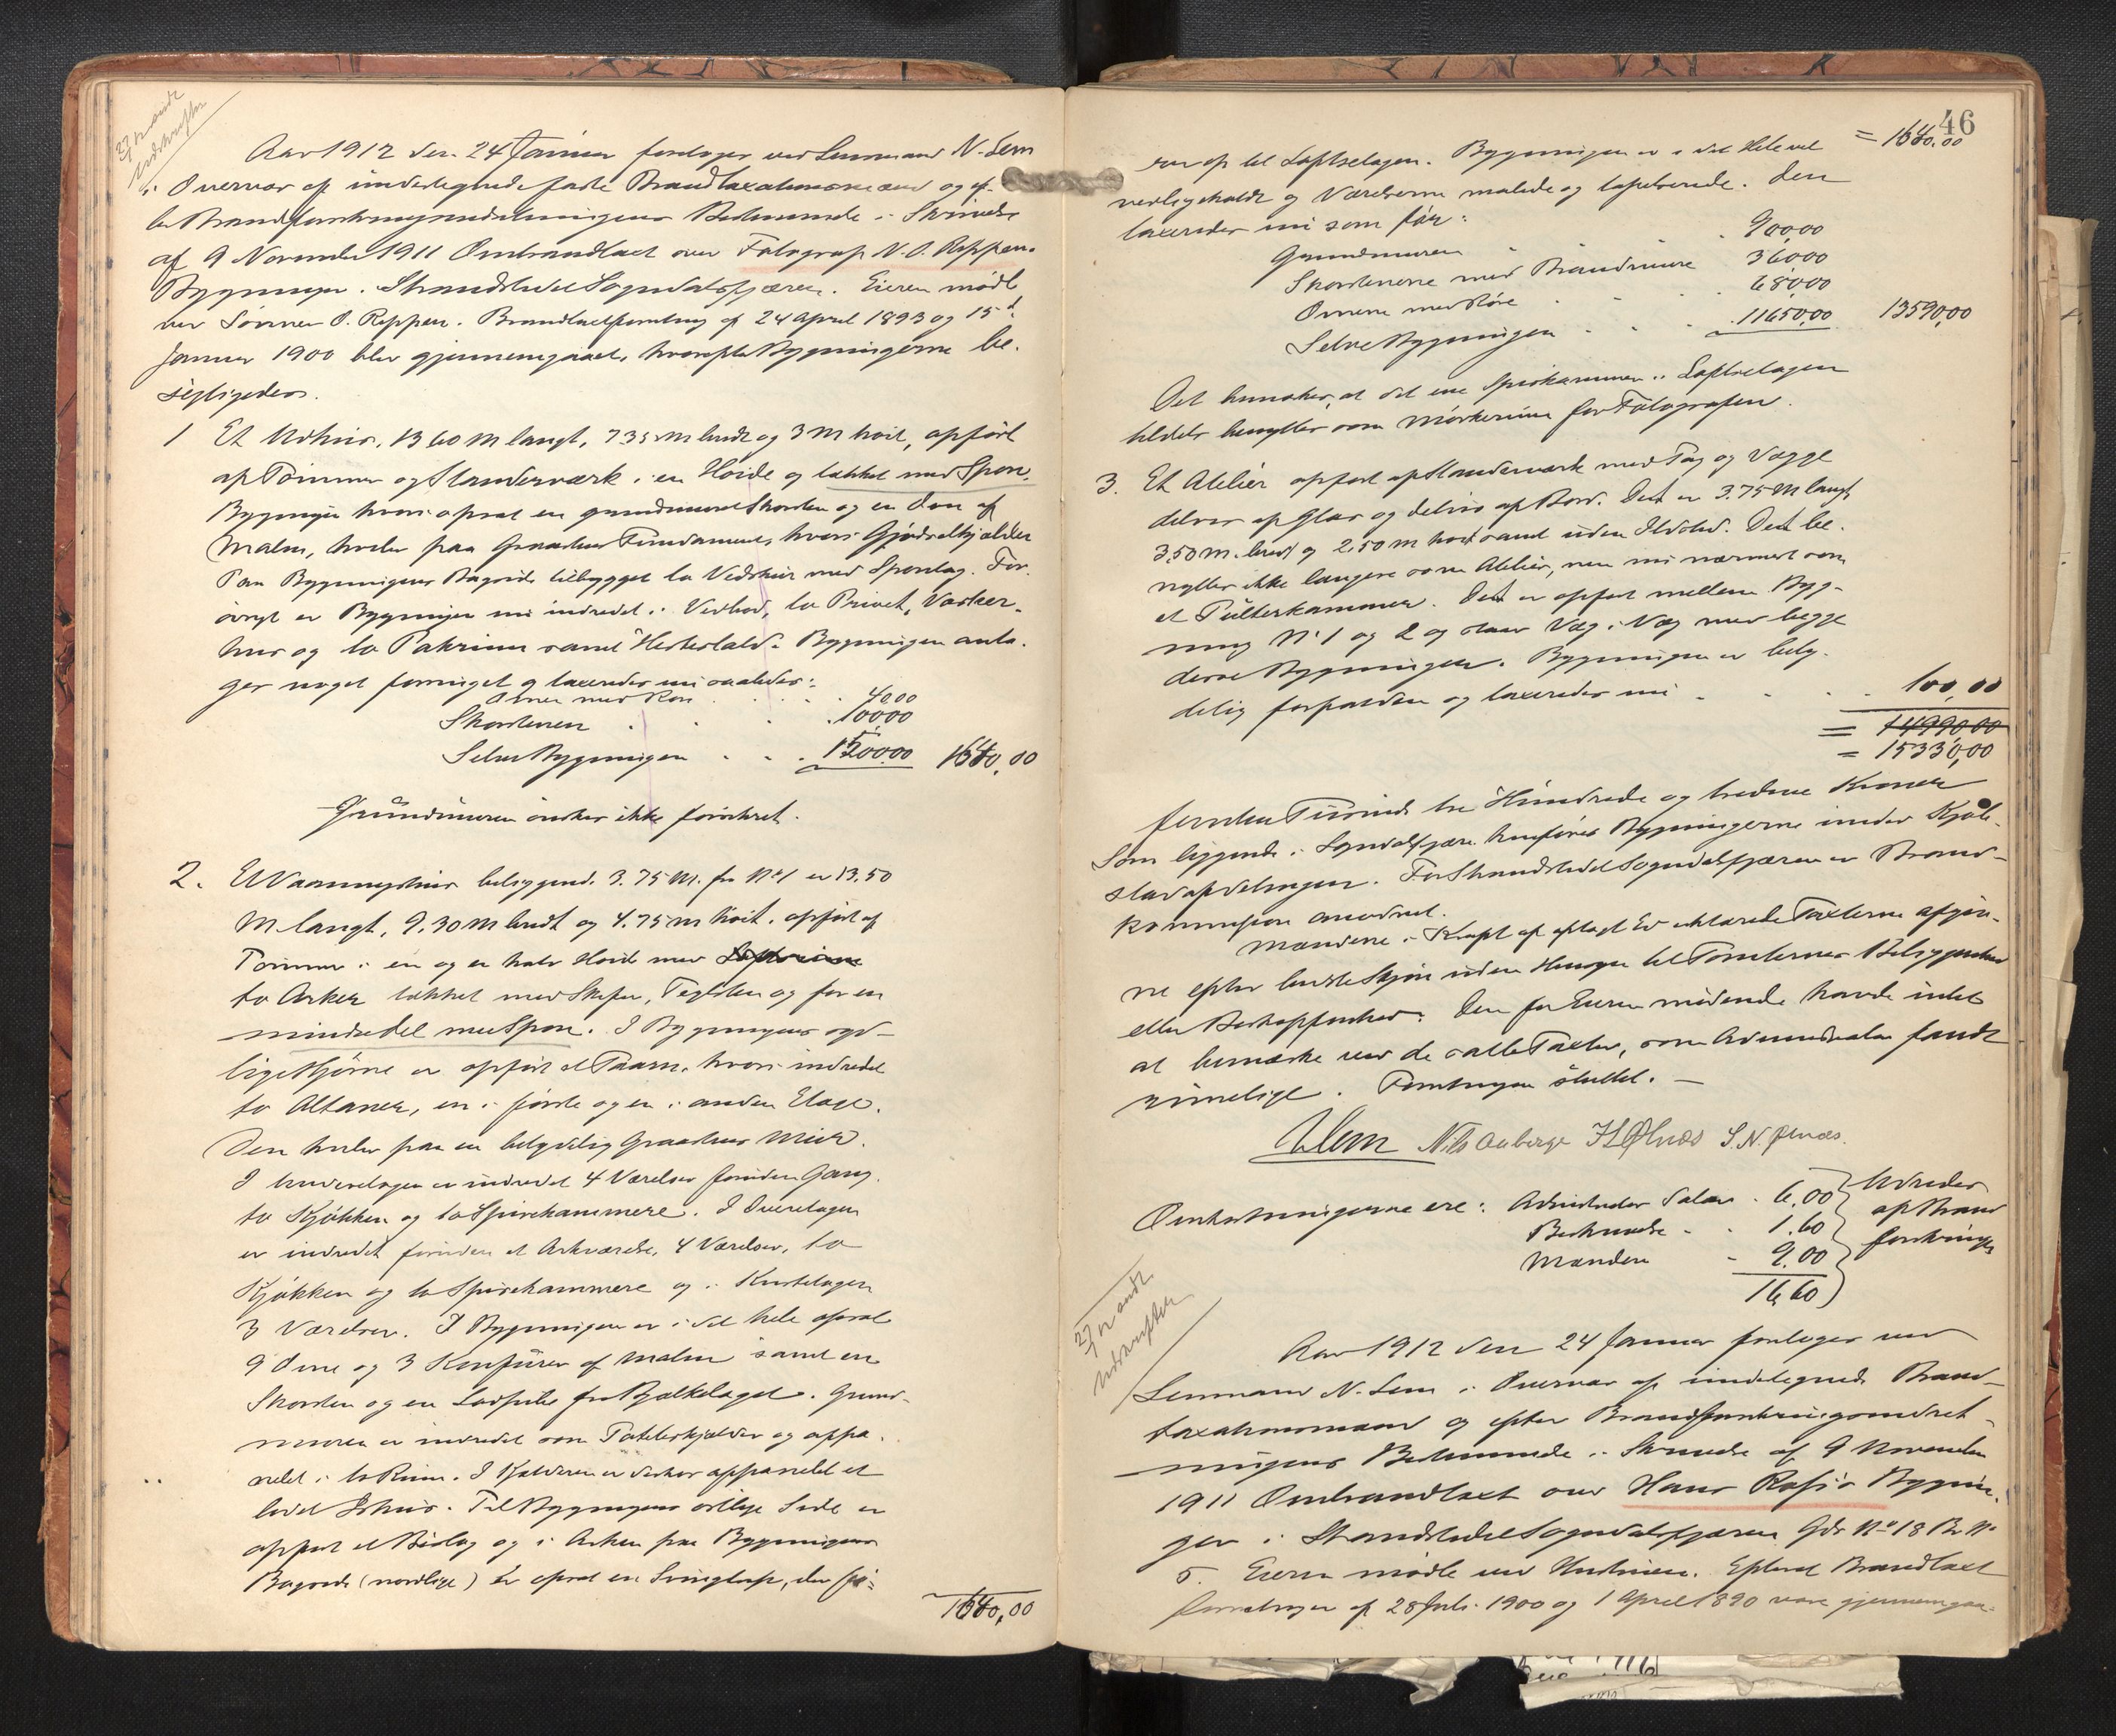 27/12 sendt
Udskrifter
Aar 1912 den 24 Januar foretoges ved Lensmand N. Lem
i Overvær af undertegnede faste Brandtaxationsmænd og ef-
ter Brandforsikringsindretningens Bestemmelse i Skrivelse
af 9 November 1911 Ombrandtaxt over Fotograf N. O. Reppens
Bygninger i Strandstedet Sogndalsfjæren. Eieren mødte
ved Sønnen O. Reppen. Brandtaxtforretning af 24 April 1893 og 15de
Januar 1900 blev gjennemgaaet, hvorefter Bygningerne be-
sigtigedes.
1 Et Udhus, 13 60 M langt, 7 35 M bredt og 3 M høit, opført
af Tømmer og Standerværk i en Høide og tækket med Spon.
Bygningen hvori opsat en grundmuret Skorsten og en Ovn af
Malm, hviler paa Graastens Fundament, hvori Gjødselkjælder
Paa Bygningens Bagside tilbygget to Vedskur med Spontag. For-
øvrigt er Bygningen nu indredet i Vedbod, to Privet, Vasker-
hus og to Pakrum samt Hestestald. Bygningen anta-
ges noget forringet og taxeredes nu saaledes:
Ovnen med Rør . . . 40,00
Skorstenen . . . 100,00
Selve Bygningen . . . 1500,00 1640,00
Grundmuren ønskes ikke forsikret.
2. Et Vaaningshus beliggende 3.75 M. fra No 1 er 13.50
M langt, 9.30 M bredt og 4.75 M høit, opført af
Tømmer i en og en halv Høide med
to Arker tækket med Skifer, Teglsten og for en
mindre del med Spon. I Bygningens syd-
lige Hjørne er opført et Taarn, hvori indredet
to Altaner, en i første og en i anden Etage.
Den hviler paa en betydelig Graastens Muur.
I Underetagen er indredet 4 Værelser foruden Gang,
to Kjøkken og to Spisekammere. I Overetagen
er indredet foruden et Arkværelse, 4 Værelser, to
Kjøkken og to Spisekammere og i Kvistetagen
3 Værelser. I Bygningen er i det hele opsat
9 Ovne og 3 Komfurer af Malm samt en
Skorsten og en Lodpibe fra Bjælkelaget. Grund-
muren er indredet som Potetkjælder og afpa-
nelet i to Rum. I Kjælderen er desuden afpanelet et
lidet Ishus. Til Bygningens østlige Side er
opført et Bislag og i Arken paa Bygningens
Bagside (nordlige) er opsat en Svingtrap, der fø-
1640,00
46
= 1640,00
rer op til Loftsetagen. Bygningen er i det Hele vel
vedligeholdt og Værelserne malede og tapetserede. Den
taxeredes nu som før:
Grundmuren . . 900,00
Skorstenene med Brandmure 360,00
Ovnene med Rør . . . 680,00
Selve Bygningen . . . 11650,00 13590,00
Det bemærkes, at det ene Spisekammer i Loftsetagen
tildels benyttes som Mørkerum for Fotografen.
3. Et Atelier opført af Standerværk med Tag og Vægge
delvis af Glas og delvis af Bord. Det er 3.75 M langt,
3,50 M. bredt og 2,50 M høit samt uden Ildsted. Det be-
nyttes ikke længere som Atelier, men nu nærmest som
et Pulterkammer. Det er opført mellem Byg-
ning No 1 og 2 og staar Væg i Væg med begge
disse Bygninger. Bygningen er bety-
delig forfalden og taxeredes nu . . . 100,00
= 14990,00
= 15330,00
femten Tusinde tre Hundrede og tredive Kroner
Som liggende i Sogndalsfjære henføres Bygningerne under Kjøb-
stadafdelingen. For Strandstedet Sogndalsfjæren er Brand-
kommission anordnet.
Mændene i Kraft af aflagt Ed erklærede Taxterne afgiv-
ne efter bedste Skjøn uden Hensyn til Tomternes Beliggenhed
eller Beskaffenhed. Den for Eieren mødende havde intet
at bemærke ved de satte Taxter, som Administrator fandt
rimelige. Forretningen sluttet. —
NLem Nils Aaberge H Ølnæs S. N. Ølnæs.
Omkostningerne ere: Administrators Salær . 6,00 Udredes
Bestemmelse . . 1.60 af Brand
Mændene . 9,00 forsikringen
16,60
27/12 sendt
Udskrifter
Aar 1912 den 24 Januar foretoges ved
Lensmand N. Lem i Overvær af undertegnede Brand-
taxationsmænd og efter Brandforsikringsindret-
ningens Bestemmelse i Skrivelse af 9 November
1911 Ombrandtaxt over Hans Bygnin-
ger i Strandstedet Sogndalsfjæren Gds No 18 Br No
5. Eieren mødte ved Hustruen. Efterat Brandtaxt
forretninger af 28 Juli 1900 og 1 April 1890 vare gjennemgaa-